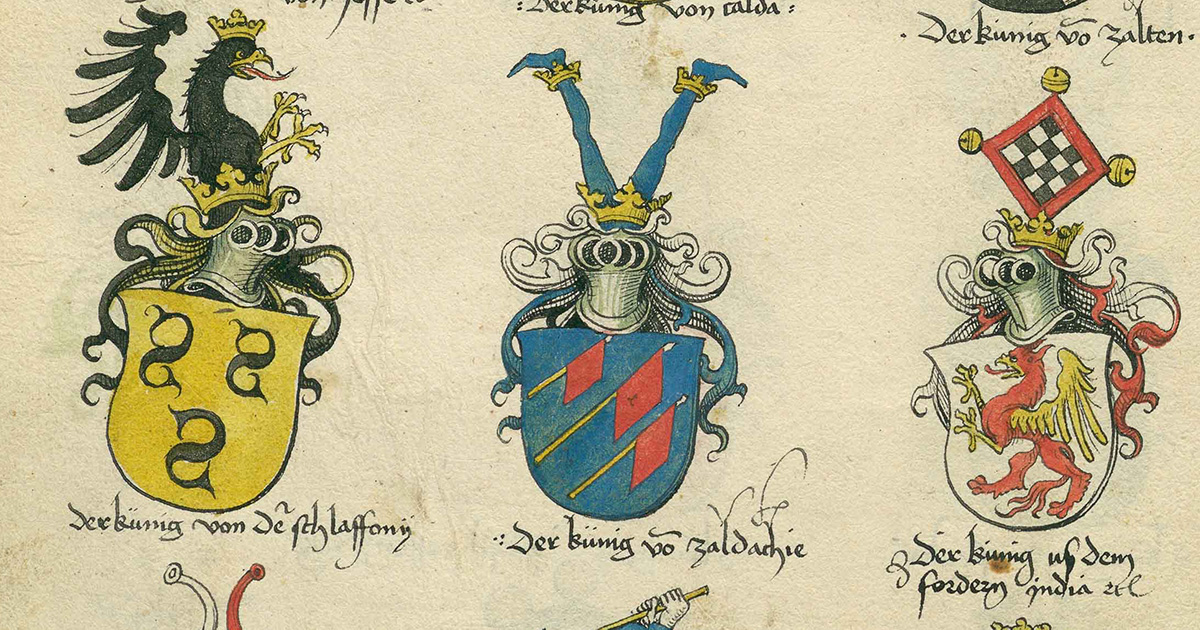 : Der künig von calda :
· Der künig vō zalten ·
der künig von dē schlaffony
: Der künig vō zaldachie
Der künig us dem
fordern india etc